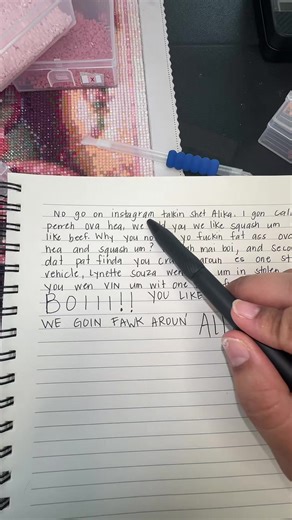 No go on instagram talkin shet Alika. I gon
perreh ova hea, we yay we like squash um
like beef. Why you no yo fuckin fat ass ova
hea and squash um? mai boi, and
dat patfinda you aroun es one
vehicle, Lynette Souza um in stolen
you wen VIN um wit one
BOIII!! YOU LIKE
WE GOIN FAWK AROUN